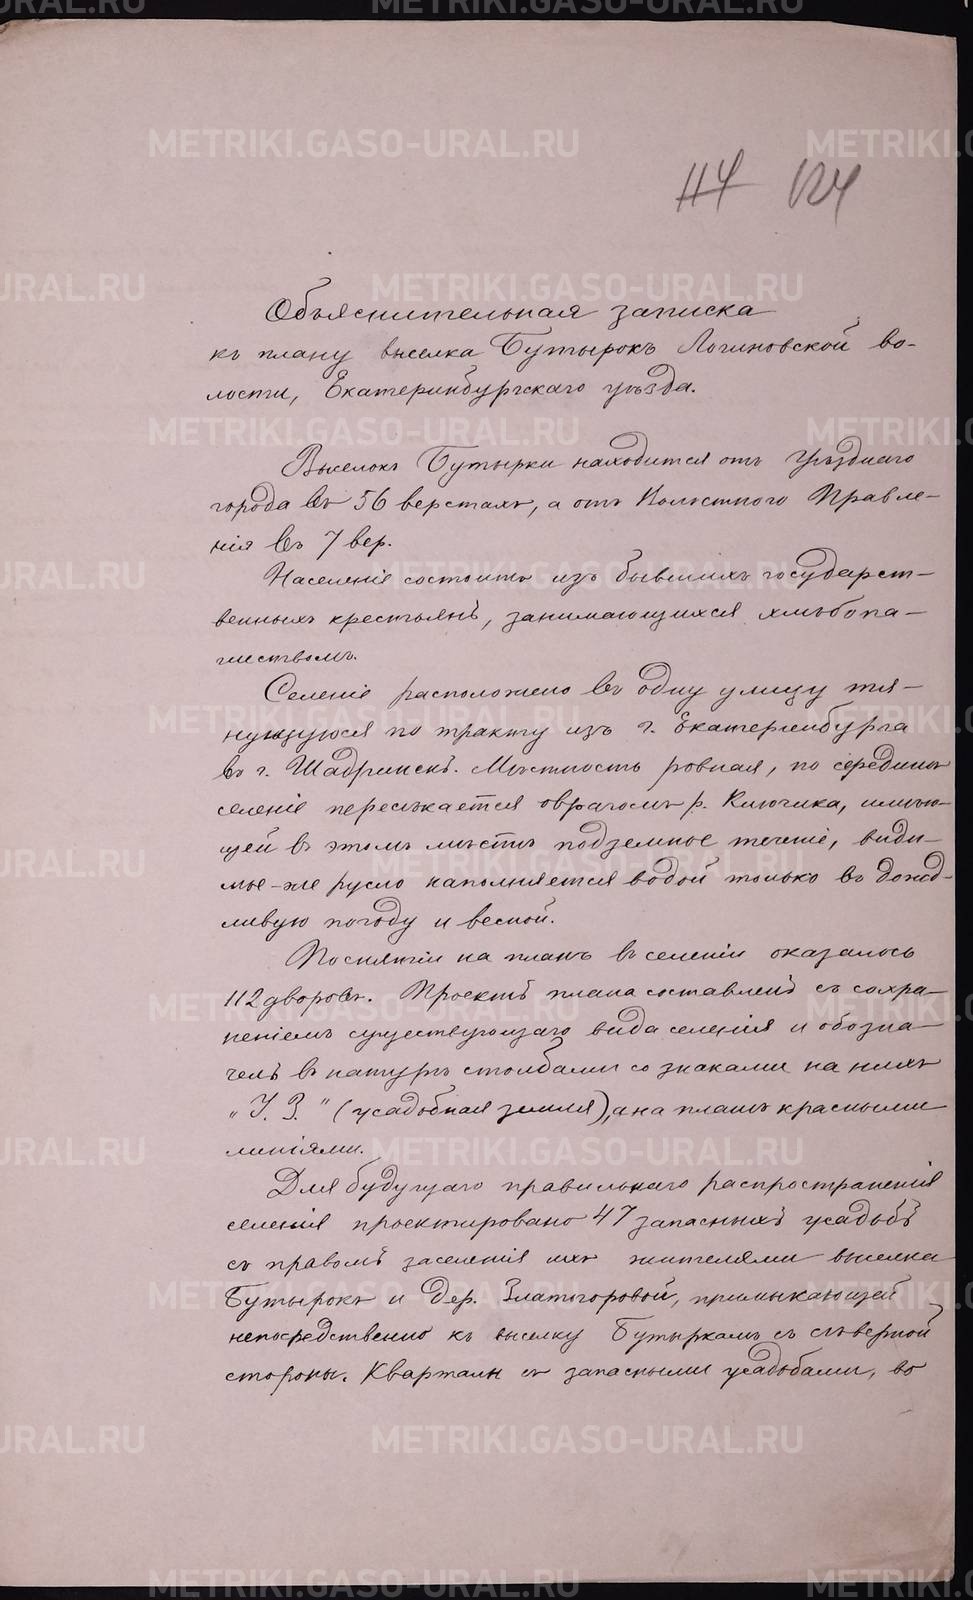 114 124
Объяснительная записка
къ плану выселка Бутырокъ Логиновской во-
лости, Екатеринбургскаго уѣзда.
Выселокъ Бутырки находится отъ Уѣзднаго
города въ 56 верстахъ, а отъ Волостного Правле-
нія въ 7 вер.
Населеніе состоитъ изъ бывшихъ государст-
венныхъ крестьянъ, занимающихся хлѣбопа-
шествомъ.
Селеніе расположено въ одну улицу тя-
нущуюся по тракту изъ г. Екатеринбурга
въ г. Шадринскъ. Мѣстность ровная, по серединѣ
селеніе пересѣкается оврагомъ р. Ключика, имѣю-
щей въ этомъ мѣстѣ подземное теченіе, види-
мое-же русло наполняется водой только въ дожд-
ливую погоду и весной.
По снятіи на планъ въ селеніи оказалось
112 дворовъ. Проектъ плана составленъ съ сохра-
неніемъ существующаго вида селенія и обозна-
ченъ въ натурѣ столбами со знаками на нихъ
"У. З." (усадебная земля), а на планѣ красными
линіями.
Для будущаго правильнаго распространенія
селенія проектировано 47 запасныхъ усадьбъ
съ правомъ заселенія ихъ жителями выселка
Бутырокъ и дер. Златогоровой, примыкающей
непосредственно къ выселку Бутыркамъ съ сѣверной
стороны. Кварталы съ запасными усадьбами, во
METRIKI.GASO-URAL.RU